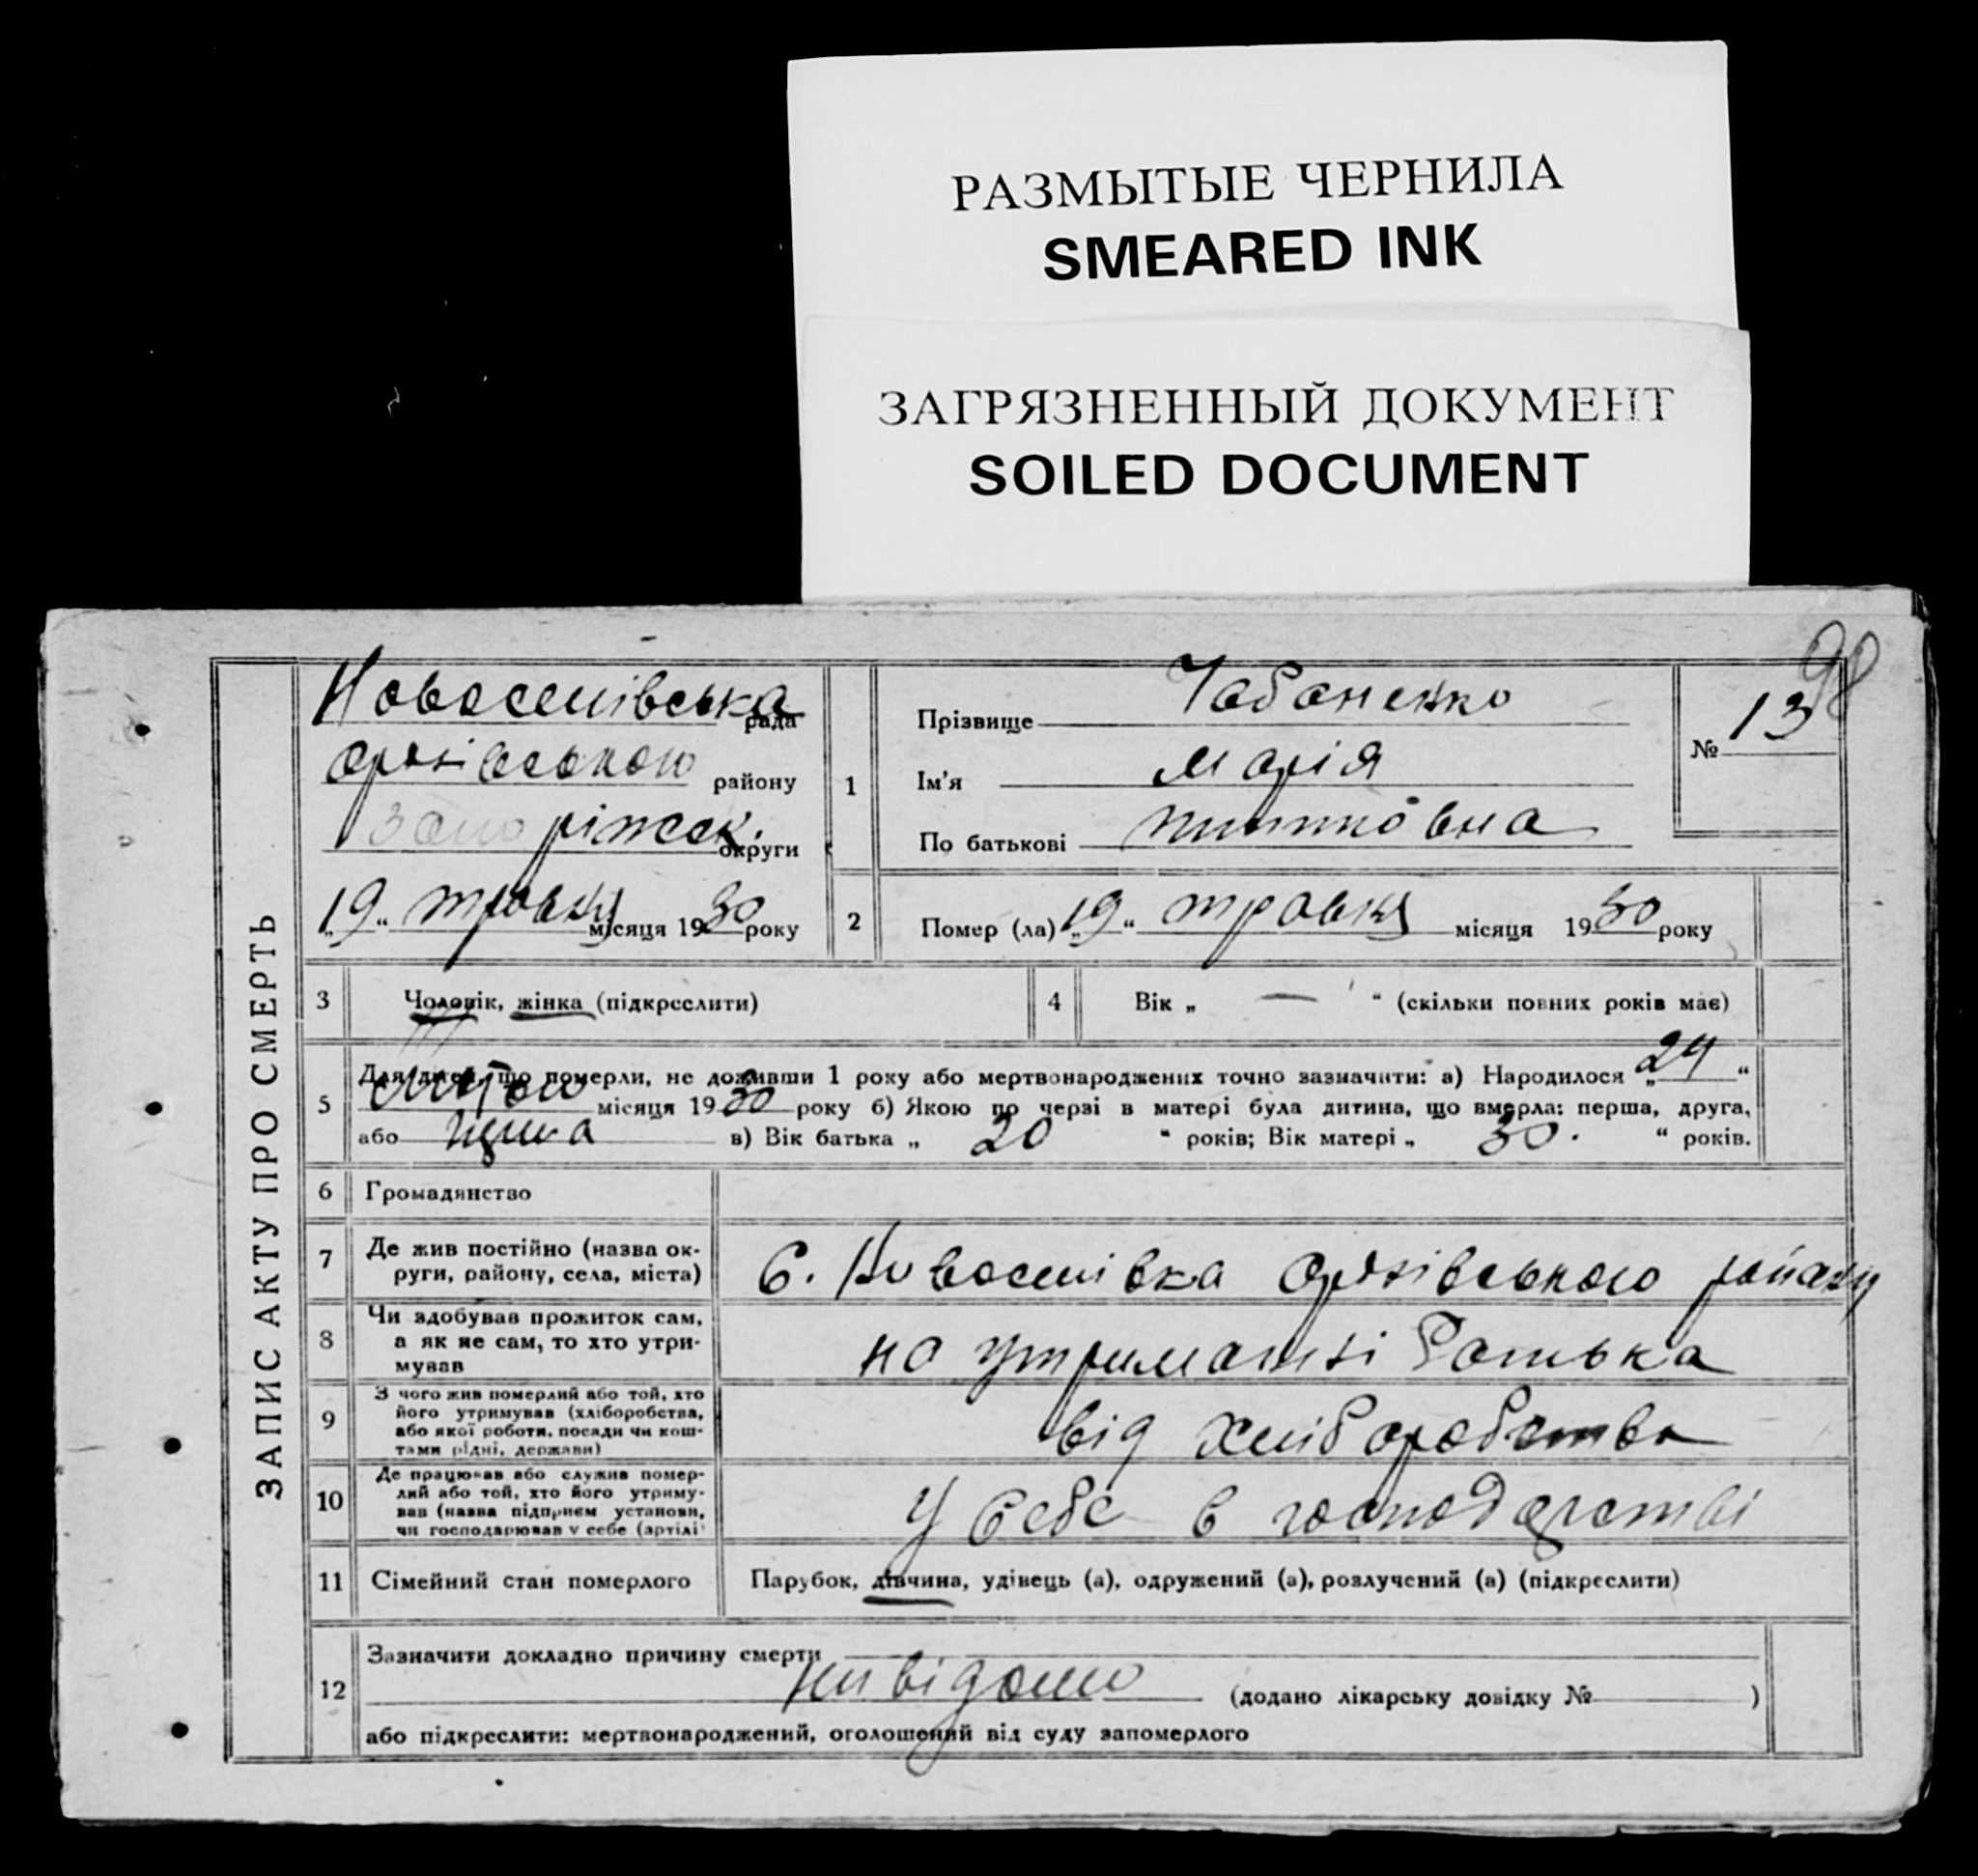 РАЗМЫТЫЕ ЧЕРНИЛА
SMEARED INK
ЗАГРЯЗНЕННЫЙ ДОКУМЕНТ
SOILED DOCUMENT
98
ЗАПИС АКТУ ПРО СМЕРТЬ
Новоселівська рада
Оріхівського району
Запоріжск. округи
„19“ травня місяця 1930 року
1
Прізвище Чабаненко
Ім'я Марія
По батькові
№ 13
2
Помер (ла) „19“ травня місяця 1930 року
3 Чоловік, жінка (підкреслити)
4 Вік „ — “ (скільки повних років має)
5 Для дітей, що померли, не доживши 1 року або мертвонароджених точно зазначити: а) Народилося „24“
лютого місяця 1930 року б) Якою по черзі в матері була дитина, що вмерла: перша, друга,
або в) Вік батька „ 20 “ років; Вік матері „ 30. “ років.
6 Громадянство
7 Де жив постійно (назва ок-
руги, району, села, міста)
С. Новоселівка Оріхівського району
8 Чи здобував прожиток сам,
а як не сам, то хто утри-
мував
на утриманні батька
9 З чого жив померлий або той, хто
його утримував (хліборобства,
або якої роботи, посади чи кош-
тами рідні, держави)
від хліборобства
10 Де працював або служив помер-
лий або той, хто його утриму-
вав (назва підприєм установи,
чи господарював у себе (артілі)
У себе в господарстві
11 Сімейний стан померлого
Парубок, дівчина, удівець (а), одружений (а), розлучений (а) (підкреслити)
12 Зазначити докладно причину смерти
невідомо (додано лікарську довідку № )
або підкреслити: мертвонароджений, оголошений від суду запомерлого